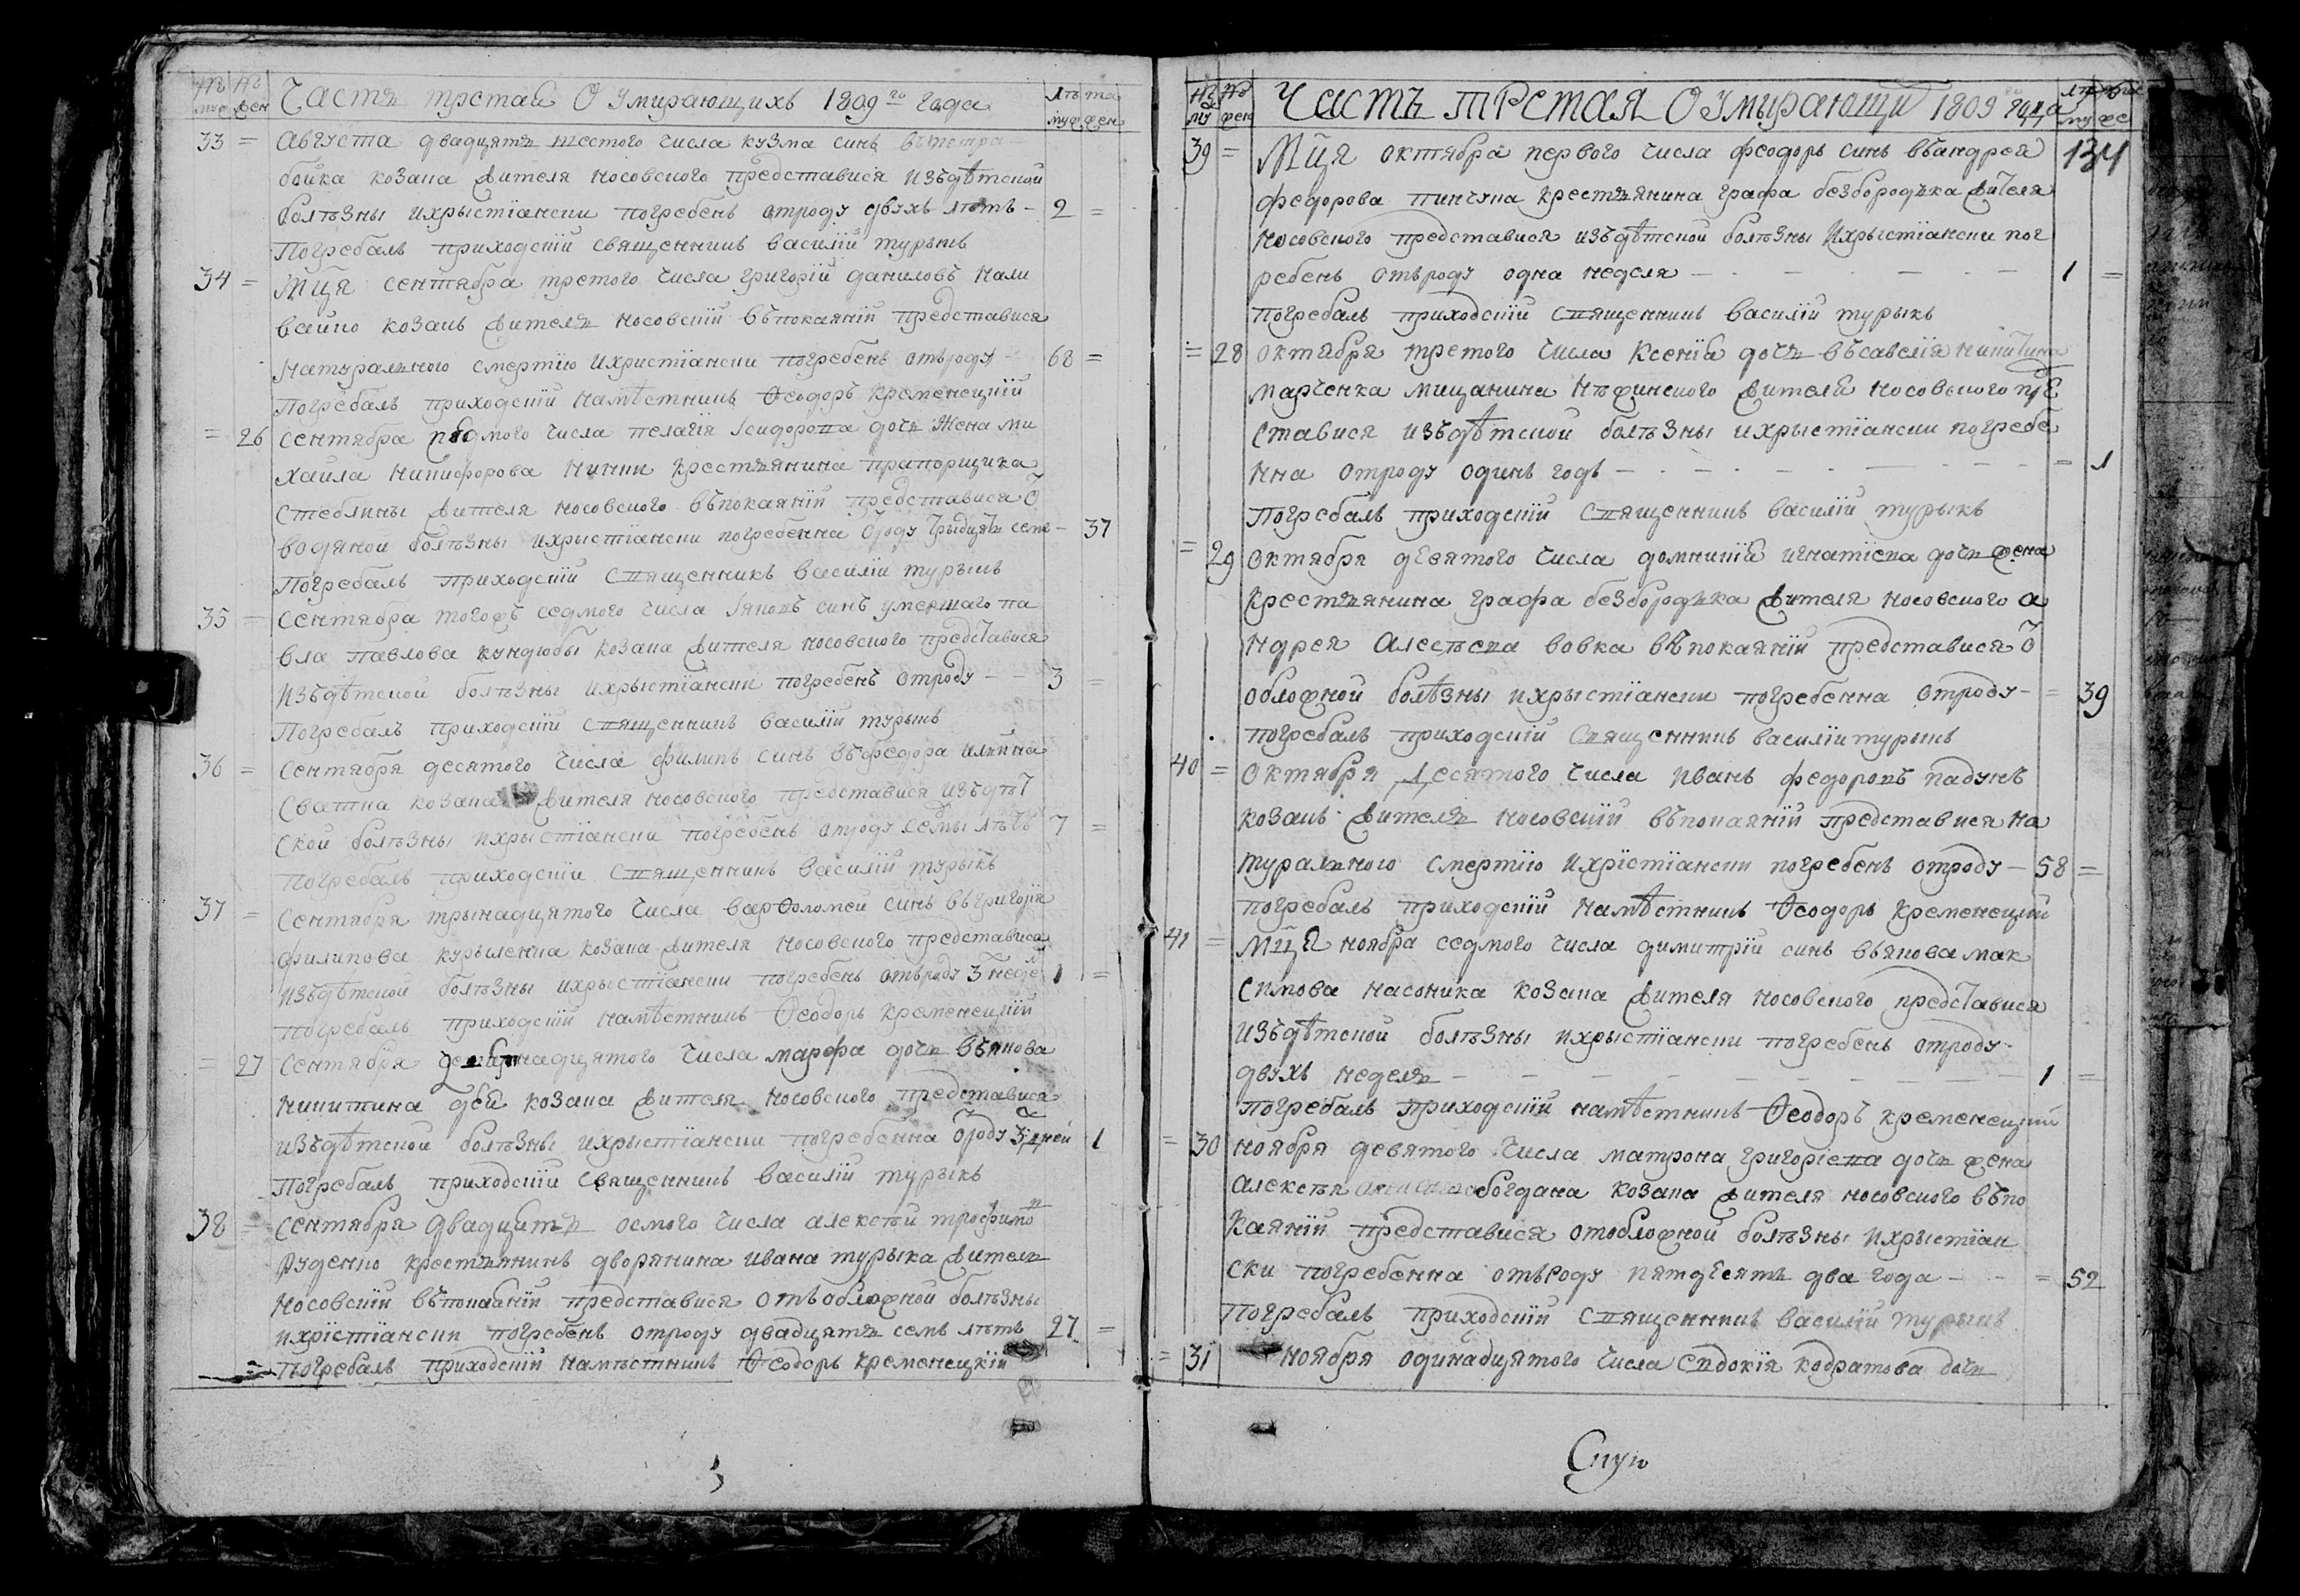 № муж № жен Часть третая О Умирающихъ 1809 го года Лѣта муж жен
33 = Августа двадцять шестого числа кузма синъ въ петра
бойка козака жителя носовского представися изъ дѣтской
болѣзны ихрыстіански погребенъ отроду двухъ лѣтъ - 2 =
Погребалъ приходскій священникъ василій турыкъ
34 = Мца сентября третого числа григорій даниловъ нали
вайко козакъ жителя носовскій въпокаяніи представися
натуралного смертію ихристіански погребенъ отъроду 68 =
Погребалъ приходскій намѣстникъ Ѳеодоръ Кременецкій
= 26 Сентября седмого числа пелагія Ісидорова дочь Жена ми
хаила никифорова кинки крестьянина прапорщика
стеблины жителя носовского въпокаяніи представися ѿ
водяной болѣзны ихрыстіански погребенна ѿроду трыдцять семъ - 37
Погребалъ приходскій священникъ василій турыкъ
35 = Сентября тогожъ седмого числа Іяковъ синъ умершаго па
вла павлова кундюбы козака жителя носовского представися
изъдѣтской болѣзны ихрыстіански погребенъ отроду - - 3 =
Погребалъ приходскій священникъ василій турыкъ
36 = Сентября десятого числа филипъ синъ въфедора илкина
Сватка козака жителя носовского представися изъдѣт
ской болѣзны ихрыстіански погребенъ отроду семы лѣтъ 7 =
Погребалъ приходскій священникъ василій турыкъ
37 = Сентября трынадцятого числа варѳоломей синъ въгригорія
филипова курыленка козака жителя носовского представися
изъдѣтской болѣзны ихрыстіански погребенъ отъроду 3 неде 1 =
погребалъ приходскій намѣстникъ Ѳеодоръ Кременецкій
= 27 Сентября надцятого числа марфа дочь въякова
никитина козака жителя носовского представися
изъдѣтской болѣзны ихрыстіански погребенна ѿроду 3 дней 1
Погребалъ приходскій священникъ василій турыкъ
38 = Сентября двадцять осмого числа алексѣй трофимов
Руденко крестьянинъ дворянина ивана турыка жителъ
носовскій въпокаяніи представися отъ обложной болѣзны
ихрістіански погребенъ отроду двадцять семъ лѣтъ 27 =
Погребалъ приходскій намѣстникъ Ѳеодоръ кременецкій
№ му № жен Часть третая О Умырающи 1809 го года му же
39 = Мця октября первого числа феодоръ синъ въандрея 134
федорова пинчука крестьянина графа безбородька жителя
носовского представися изъдѣтской болѣзны ихрыстіански пог
ребенъ отъроду одна неделя - - - - - 1 =
Погребалъ приходскій священникъ василій турыкъ
= 28 Октября третого числа Ксенія дочь въсавелія никитина
марченка мищанина нѣжинского жителя носовского пре
ставися изъдѣтской болѣзны ихрыстіански погребе
нна отроду одинъ годъ - - - - - = 1
Погребалъ приходскій священникъ василій турыкъ
= 29 Октября девятого числа домникія игнатіева дочь жена
Крестьянина графа безбородька жителя носовского а
ндрея Алексѣева вовка въпокаяніи представися ѿ
обложной болѣзны ихрыстіански погребенна отроду - = 39
погребалъ приходскій священникъ василій турыкъ
40 = Октября десятого числа иванъ федоровъ падунъ
козакъ жителъ носовскій въпокаяніи представися на
туралного смертію ихрістіански погребенъ отроду - 58 =
погребалъ приходскій намѣстникъ Ѳеодоръ Кременецкій
41 = Мця ноября седмого числа димитрій синъ въякова мак
симова насоника козака жителя носовского представися
изъдѣтской болѣзны ихрыстіански погребенъ отроду -
двухъ неделъ - - - - - - 1 =
погребалъ приходскій намѣстникъ Ѳеодоръ Кременецкій
= 30 ноября девятого числа матрона григоріева дочь жена
алексѣя богдана козака жителя носовского въпо
каяніи представися отобложной болѣзны ихрыстіан
ски погребенна отъроду пятдесятъ два года - - = 52
Погребалъ приходскій священникъ василій турыкъ
= 31 ноября одинадцятого числа Евдокія кодратова дочь